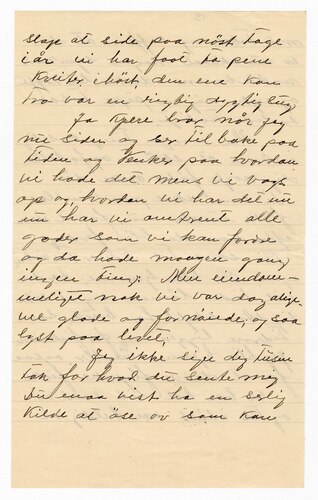 slap at side paa nöst Tage
i år vi har faat to pene
Kviter, i höst, den ene kan
tro var en rigtig dygtig
Ja kjere bror når jeg
nu siden og ser tilbake paa
tiden og Tenker paa hvordan
vi hade det mens vi vogs
op og hvordan vi har det nu
nu har vi omtrent alle
goder som vi kan fordre
og da hade mangen gang
ingen ting; Men eiendom-
meliget nok vi var dog alige-
vel glade og fornöiede, og saa
lyst paa livet,
Jeg ikke sige dig tusen
tak for hvad du sente mig
Du maa vist ha en
Kilde at öse av som kan